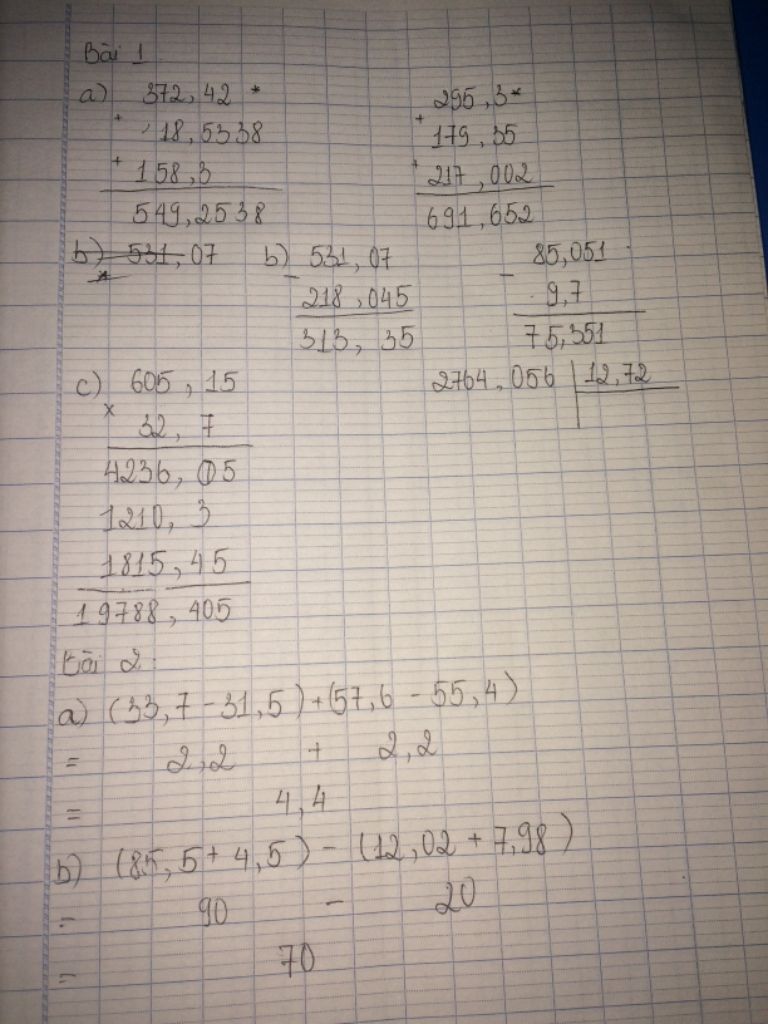 Bài 1
a) 372,42 * 295,3*
+ 18,5338 + 179,35
+ 158,3 + 217,002
549,2538 691,652
b) 531,07 b) 531,07 85,051
* - 218,045 - 9,7
313,35 75,351
c) 605,15 2764,056 12,72
x 32,7
4236,05
1210,3
1815,45
19788,405
Bài 2:
a) (33,7 - 31,5) + (57,6 - 55,4)
= 2,2 + 2,2
= 4,4
b) (85,5 + 4,5) - (12,02 + 7,98)
= 90 - 20
= 70